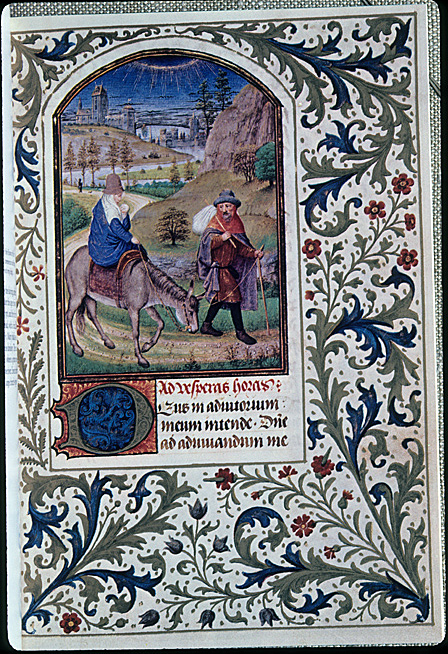 Ad vesperas horas
Deus in adiutorium
meum intende. Dne
ad adiuuandum me